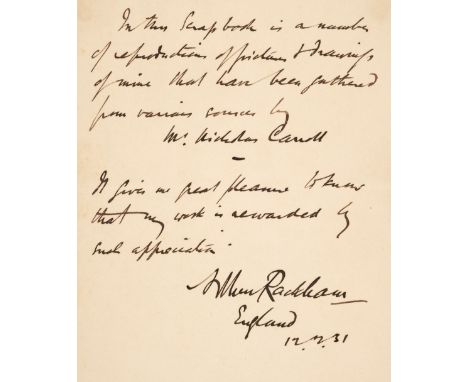 In this Scrapbook is a number
of reproductions of pictures & drawings
of mine that have been gathered
from various sources by
Mr. Nicholas Carroll
It gives me great pleasure to know
that my work is rewarded by
such appreciation.
Arthur Rackham
England
12.7.31